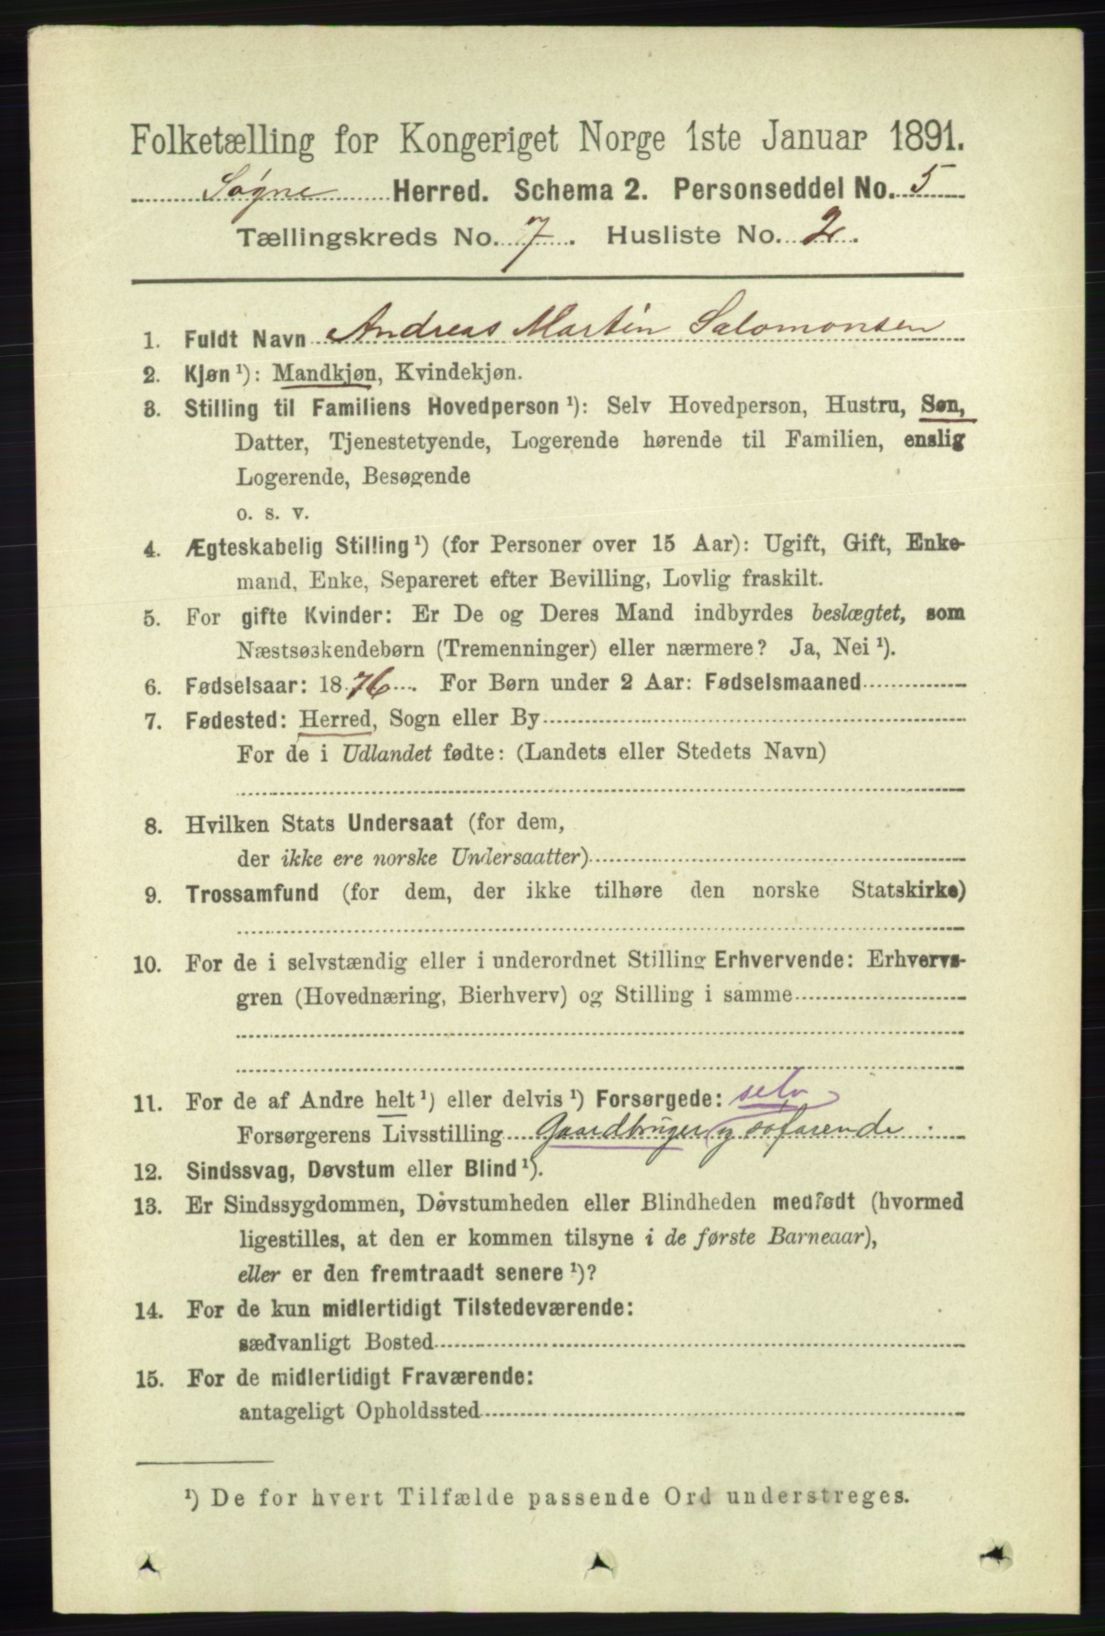 Folketælling for Kongeriget Norge 1ste Januar 1891.
Søgne Herred. Schema 2. Personseddel No. 5
Tællingskreds No. 7. Husliste No. 2.
1. Fuldt Navn Andreas Martin Salomonsen
2. Kjøn ¹): Mandkjøn, Kvindekjøn.
3. Stilling til Familiens Hovedperson ¹): Selv Hovedperson, Hustru, Søn,
Datter, Tjenestetyende, Logerende hørende til Familien, enslig
Logerende, Besøgende
o. s. v.
4. Ægteskabelig Stilling ¹) (for Personer over 15 Aar): Ugift, Gift, Enke-
mand, Enke, Separeret efter Bevilling, Lovlig fraskilt.
5. For gifte Kvinder: Er De og Deres Mand indbyrdes beslægtet, som
Næstsøskendebørn (Tremenninger) eller nærmere? Ja, Nei ¹).
6. Fødselsaar: 1876. For Børn under 2 Aar: Fødselsmaaned
7. Fødested: Herred, Sogn eller By
For de i Udlandet fødte: (Landets eller Stedets Navn)
8. Hvilken Stats Undersaat (for dem,
der ikke ere norske Undersaatter)
9. Trossamfund (for dem, der ikke tilhøre den norske Statskirke)
10. For de i selvstændig eller i underordnet Stilling Erhvervende: Erhvervs-
gren (Hovednæring, Bierhverv) og Stilling i samme
11. For de af Andre helt ¹) eller delvis ¹) Forsørgede: selv
Forsørgerens Livsstilling Gaardbruger og søfarende.
12. Sindssvag, Døvstum eller Blind ¹).
13. Er Sindssygdommen, Døvstumheden eller Blindheden medfødt (hvormed
ligestilles, at den er kommen tilsyne i de første Barneaar),
eller er den fremtraadt senere ¹)?
14. For de kun midlertidigt Tilstedeværende:
sædvanligt Bosted
15. For de midlertidigt Fraværende:
antageligt Opholdssted
¹) De for hvert Tilfælde passende Ord understreges.